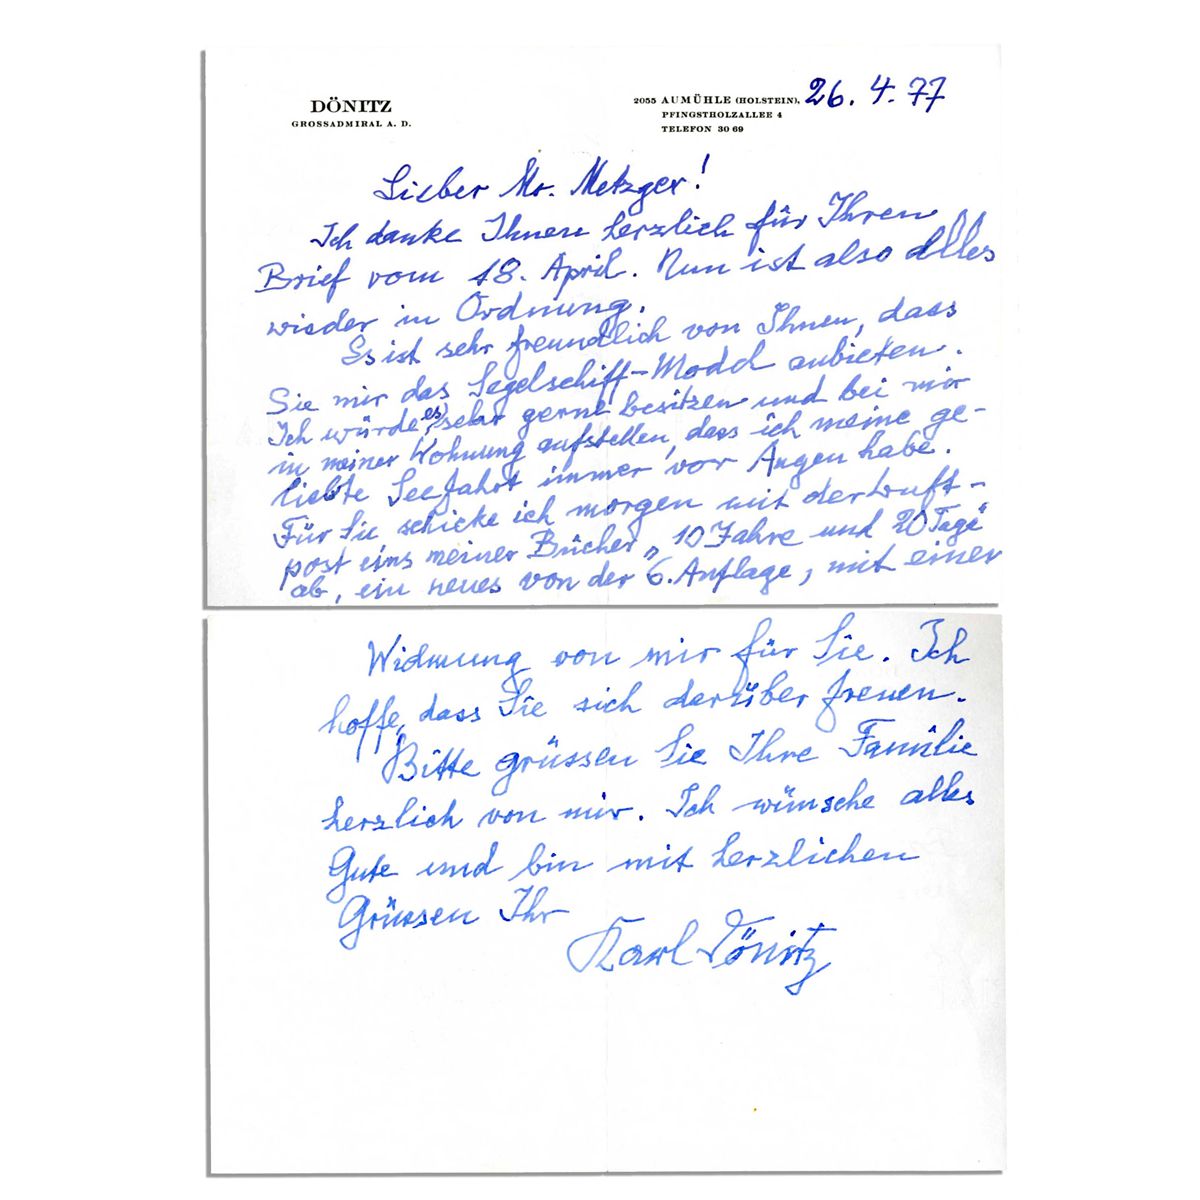 DÖNITZ
GROSSADMIRAL A. D.
2055 AUMÜHLE (HOLSTEIN), 26. 4. 77
PFINGSTHOLZALLEE 4
TELEFON 30 69
Lieber Mr. Metzger!
Ich danke Ihnen herzlich für Ihren
Brief vom 18. April. Nun ist also alles
wieder in Ordnung.
Es ist sehr freundlich von Ihnen, dass
Sie mir das Segelschiff-Modell anbieten.
Ich würde es sehr gerne besitzen und bei mir
in meiner Wohnung aufstellen, dass ich meine ge-
liebte Seefahrt immer vor Augen habe.
Für Sie schicke ich morgen mit der Luft-
post eins meiner Bücher „10 Jahre und 20 Tage"
ab, ein neues von der 6. Auflage, mit einer
Widmung von mir für Sie. Ich
hoffe, dass Sie sich darüber freuen.
Bitte grüssen Sie Ihre Familie
herzlich von mir. Ich wünsche alles
Gute und bin mit herzlichen
Grüssen Ihr
Karl Dönitz